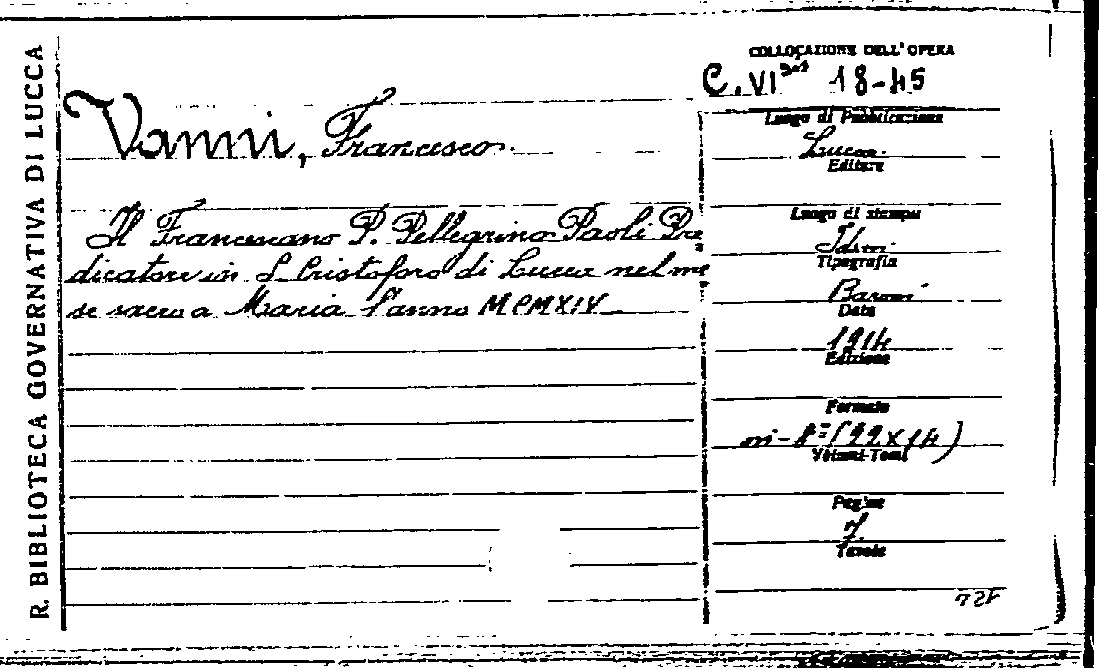 R. BIBLIOTECA GOVERNATIVA DI LUCCA
Vanni, Francesco.
Il Francescano P. Pellegrino Paoli Pre
dicatore in S. Cristoforo di Lucca nel me
se sacro a Maria l'anno MCMXIV
COLLOCAZIONE DELL'OPERA
C. VI 18-45
Luogo di Pubblicazione
Lucca.
Editore
Luogo di stampa
Idem.
Tipografia
Baroni
Data
1914
Edizione
Formato
in-8º (22x14)
Volumi-Tomi
Pagine
7.
Tavole